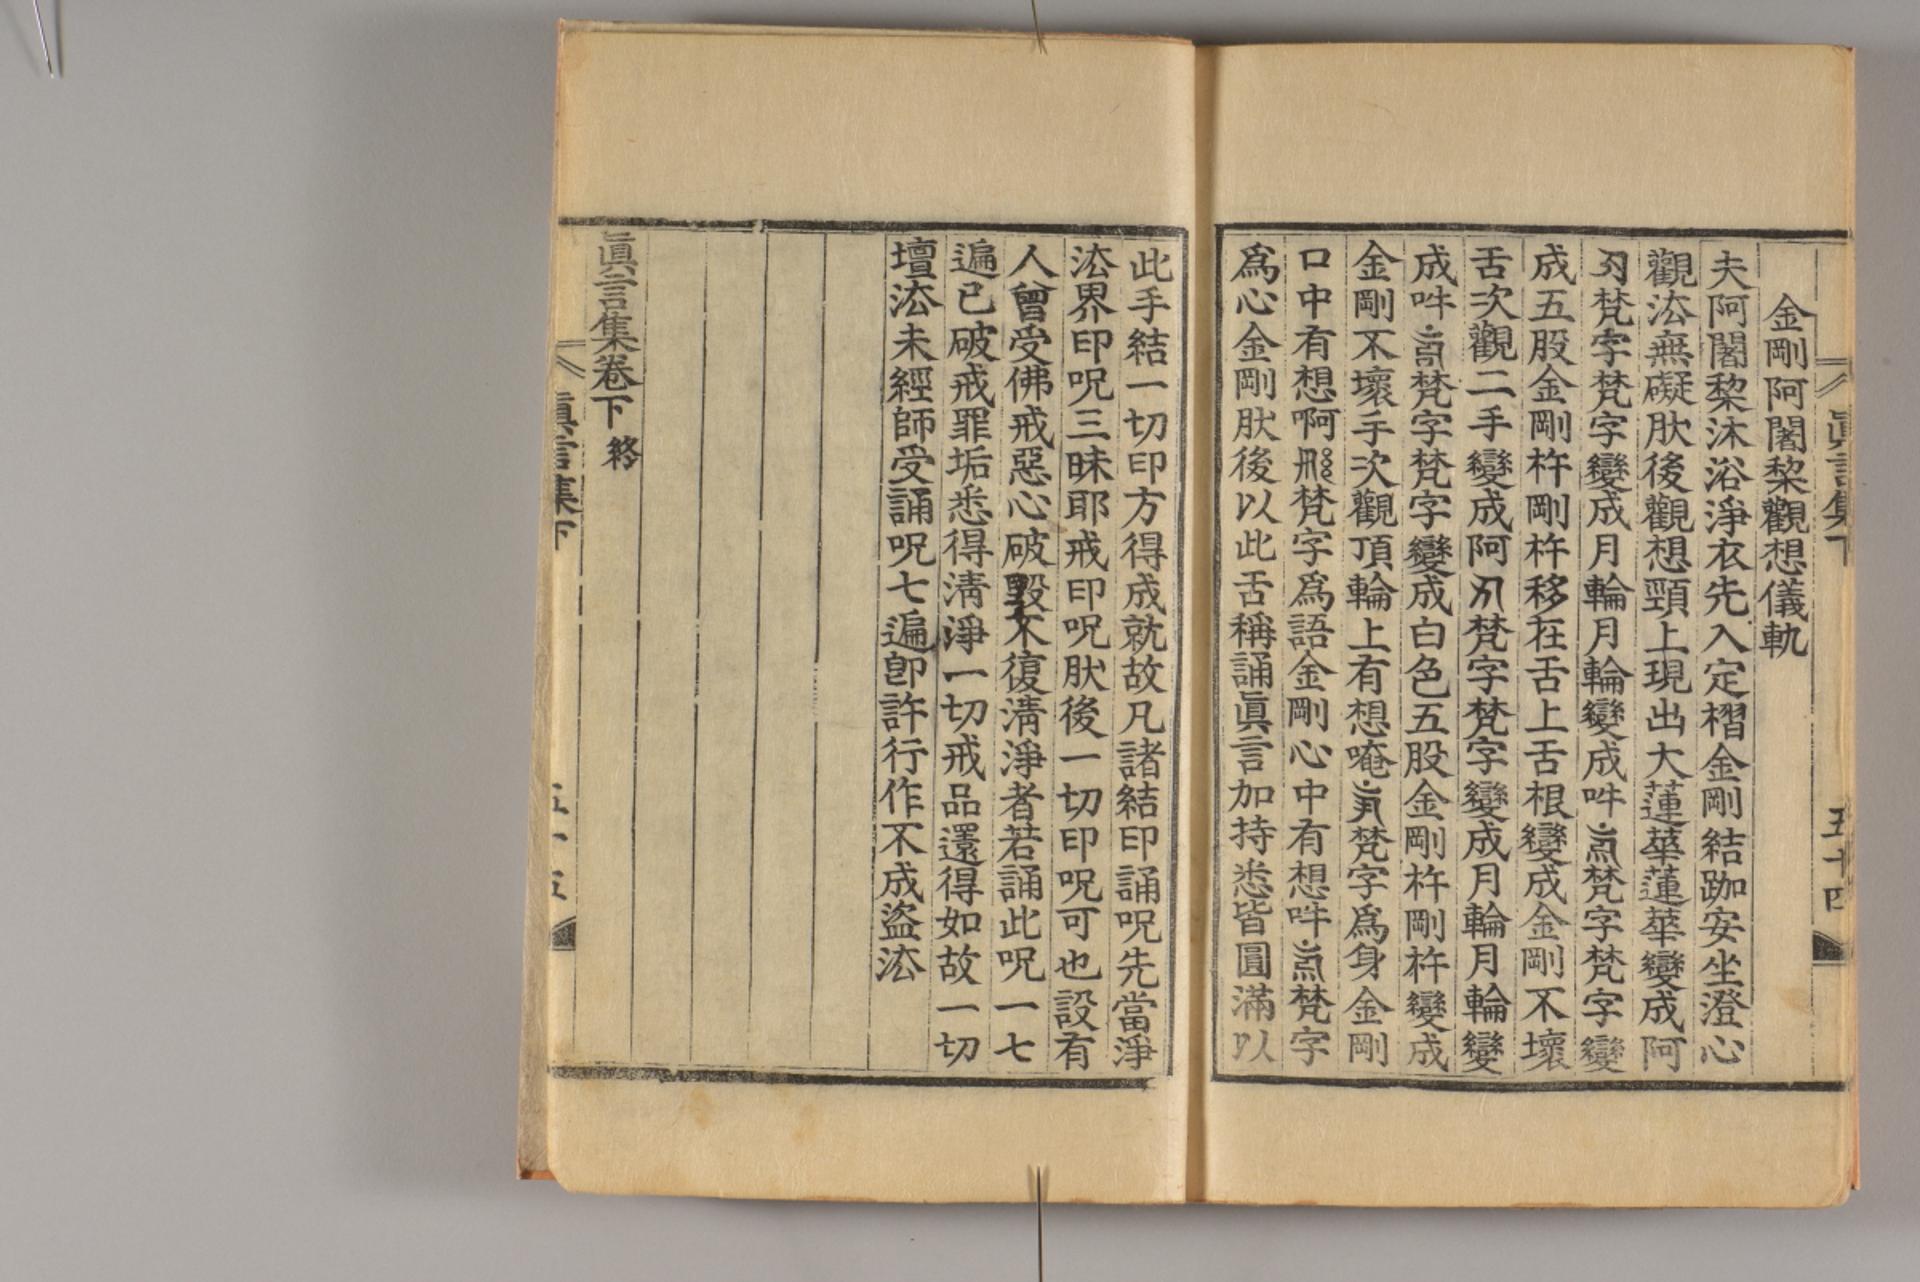 眞言集下
五十四
金剛阿闍梨觀想儀軌
夫阿闍梨沐浴淨衣先入定榴金剛結跏安坐澄心
觀法無礙肰後觀想頸上現出大蓮華蓮華變成阿
梵字梵字變成月輪月輪變成吽梵字梵字變
成五股金剛杵剛杵移在舌上舌根變成金剛不壞
舌次觀二手變成阿梵字梵字變成月輪月輪變
成吽梵字梵字變成白色五股金剛杵剛杵變成
金剛不壞手次觀頂輪上有想唵梵字爲身金剛
口中有想啊梵字爲語金剛心中有想吽梵字
爲心金剛肰後以此舌稱誦眞言加持悉皆圓滿以
此手結一切印方得成就故凡諸結印誦呪先當淨
法界印呪三昧耶戒印呪肰後一切印呪可也設有
人曾受佛戒惡心破毀不復淸淨者若誦此呪一七
遍已破戒罪垢悉得淸淨一切戒品還得如故一切
壇法未經師受誦呪七遍卽許行作不成盜法
眞言集卷下 終
眞言集下
五十五